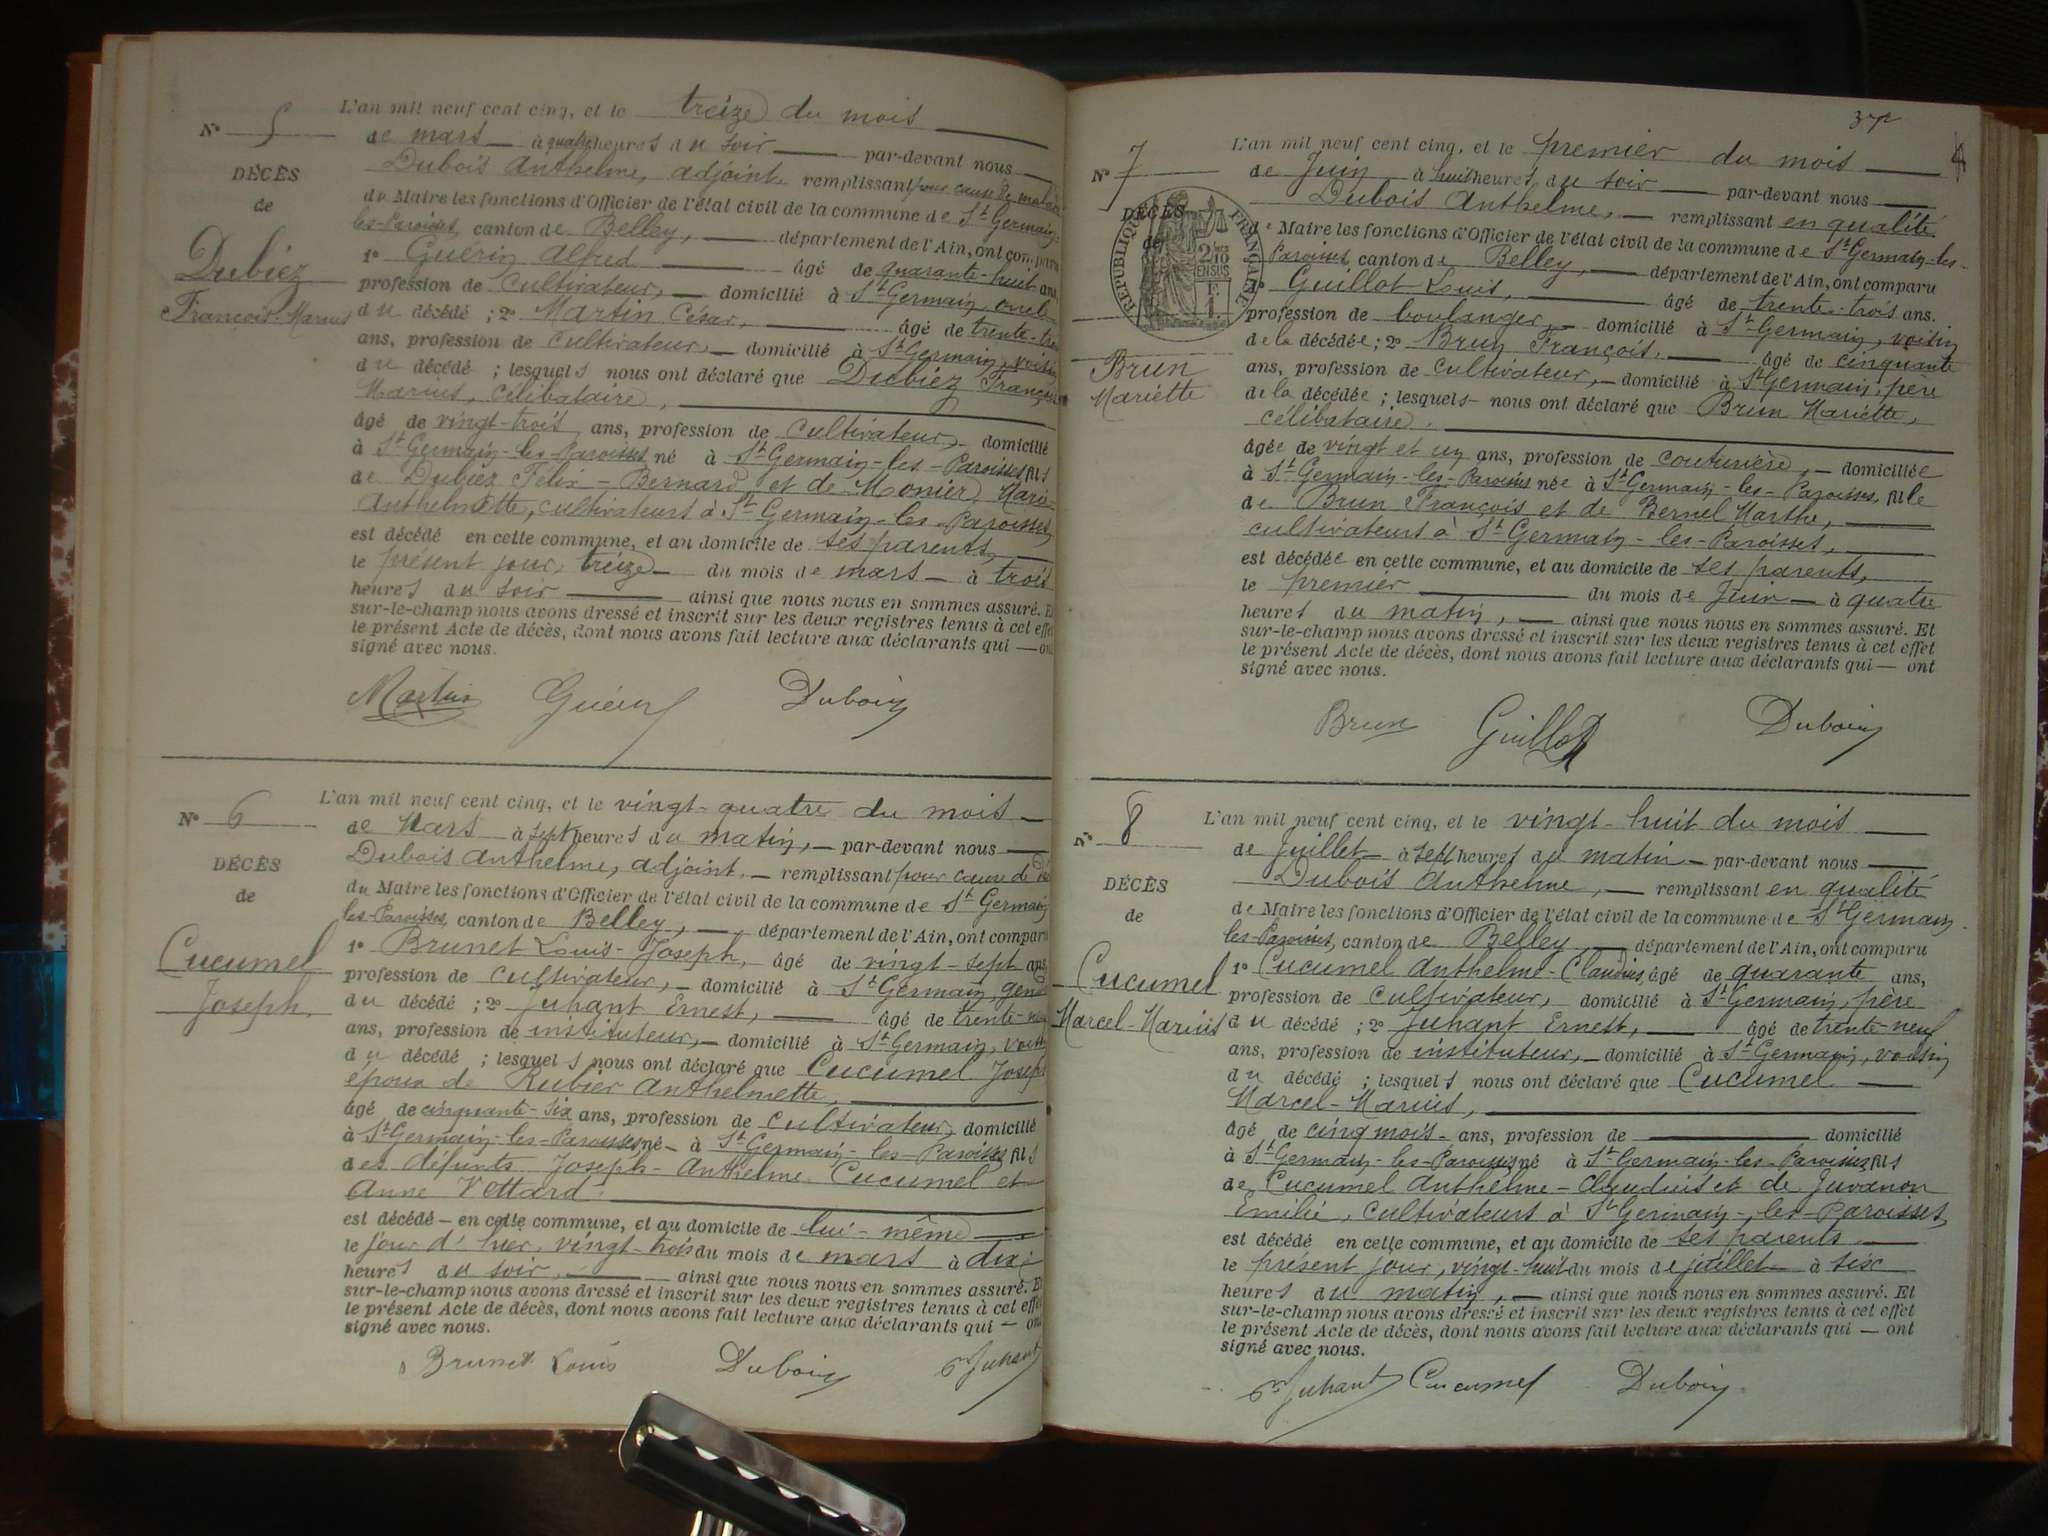 L'an mil neuf cent cinq, et le treize du mois
N° 5
de mars à quatre heures du soir par-devant nous
DÉCÈS
Dubois Anthelme, adjoint remplissant pour cause de
de
du Maire les fonctions d'Officier de l'état civil de la commune de St Germain-
les-Paroisses, canton de Belley, département de l'Ain, ont comparu
Dubiez
François-Marius
1° Guérin Alfred âgé de quarante-huit ans,
profession de cultivateur, domicilié à St Germain, oncle
du décédé ; 2° Martin César, âgé de trente-
ans, profession de cultivateur, domicilié à St Germain, voisin
du décédé ; lesquels nous ont déclaré que Dubiez François
Marius, célibataire,
âgé de vingt-trois ans, profession de cultivateur, domicilié
à St Germain-les-Paroisses né à St Germain-les-Paroisses fils
de Dubiez Félix-Bernard et de Monier Marie
Anthelmette, cultivateurs à St Germain-les-Paroisses,
est décédé en cette commune, et au domicile de ses parents,
le présent jour, treize du mois de mars à trois
heures du soir ainsi que nous nous en sommes assuré. Et
sur-le-champ nous avons dressé et inscrit sur les deux registres tenus à cet effet
le présent Acte de décès, dont nous avons fait lecture aux déclarants qui ont
signé avec nous.
Martin Guérin Dubois
L'an mil neuf cent cinq, et le vingt-quatre du mois
N° 6
de Mars à sept heures du matin, par-devant nous
DÉCÈS
Dubois Anthelme, adjoint, remplissant pour cause de
de
du Maire les fonctions d'Officier de l'état civil de la commune de St Germain
les-Paroisses, canton de Belley, département de l'Ain, ont comparu
Cucumel
Joseph.
1° Brunet Louis-Joseph, âgé de vingt-sept ans,
profession de cultivateur, domicilié à St Germain, gendre
du décédé ; 2° Juhant Ernest, âgé de trente-
ans, profession de instituteur, domicilié à St Germain, voisin
du décédé ; lesquels nous ont déclaré que Cucumel Joseph
époux de Rubier Anthelmette,
âgé de cinquante-six ans, profession de cultivateur, domicilié
à St Germain-les-Paroisses né à St Germain-les-Paroisses fils
des défunts Joseph-Anthelme Cucumel et
Anne Vettard.
est décédé en cette commune, et au domicile de lui-même
le jour d'hier, vingt-trois du mois de mars à dix
heures du soir, ainsi que nous nous en sommes assuré. Et
sur-le-champ nous avons dressé et inscrit sur les deux registres tenus à cet effet
le présent Acte de décès, dont nous avons fait lecture aux déclarants qui ont
signé avec nous.
Brunet Louis Dubois Juhant
L'an mil neuf cent cinq, et le premier du mois
N° 7
de Juin à huit heures du soir par-devant nous
DÉCÈS
Dubois Anthelme, remplissant en qualité
de
RÉPUBLIQUE FRANÇAISE
de Maire les fonctions d'Officier de l'état civil de la commune de St Germain-les-
Paroisses, canton de Belley, département de l'Ain, ont comparu
1° Guillot Louis, âgé de trente-trois ans.
profession de boulanger, domicilié à St Germain, voisin
de la décédée ; 2° Brun François, âgé de cinquante
Brun
Mariette
ans, profession de cultivateur, domicilié à St Germain, père
de la décédée ; lesquels nous ont déclaré que Brun Mariette,
célibataire.
âgée de vingt et un ans, profession de couturière, domiciliée
à St Germain-les-Paroisses née à St Germain-les-Paroisses, fille
de Brun François et de Bernel Marthe,
cultivateurs à St Germain-les-Paroisses,
est décédée en cette commune, et au domicile de ses parents,
le premier du mois de Juin à quatre
heures du matin, ainsi que nous nous en sommes assuré. Et
sur-le-champ nous avons dressé et inscrit sur les deux registres tenus à cet effet
le présent Acte de décès, dont nous avons fait lecture aux déclarants qui ont
signé avec nous.
Brun Guillot Dubois
L'an mil neuf cent cinq, et le vingt-huit du mois
N° 8
de Juillet à sept heures du matin par-devant nous
DÉCÈS
Dubois Anthelme, remplissant en qualité
de
de Maire les fonctions d'Officier de l'état civil de la commune de St Germain-
les-Paroisses, canton de Belley, département de l'Ain, ont comparu
Cucumel
Marcel-Marius
1° Cucumel Anthelme-Claudius, âgé de quarante ans,
profession de cultivateur, domicilié à St Germain, père
du décédé ; 2° Juhant Ernest, âgé de trente-neuf
ans, profession de instituteur, domicilié à St Germain, voisin
du décédé ; lesquels nous ont déclaré que Cucumel
Marcel-Marius,
âgé de cinq mois ans, profession de domicilié
à St Germain-les-Paroisses né à St Germain-les-Paroisses fils
de Cucumel Anthelme-Claudius et de Juvanon
Emilie, cultivateurs à St Germain-les-Paroisses,
est décédé en cette commune, et au domicile de ses parents
le présent jour, vingt-huit du mois de juillet à six
heures du matin, ainsi que nous nous en sommes assuré. Et
sur-le-champ nous avons dressé et inscrit sur les deux registres tenus à cet effet
le présent Acte de décès, dont nous avons fait lecture aux déclarants qui ont
signé avec nous.
Juhant Cucumel Dubois